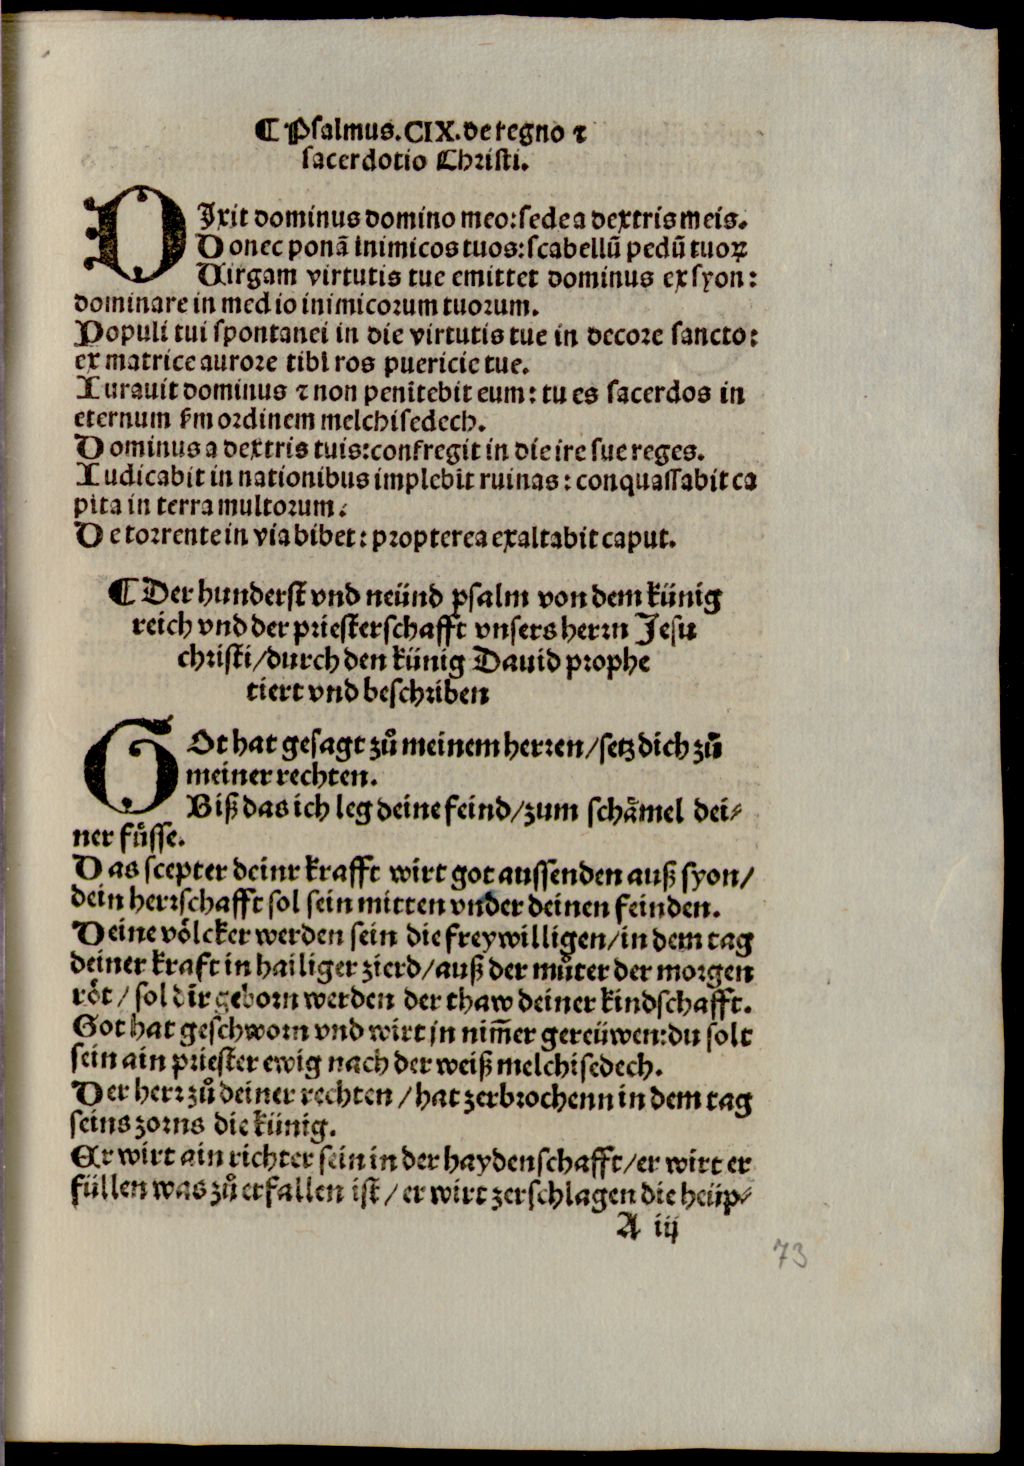 ¶ Psalmus. CIX. de regno ⁊
sacerdotio Christi.
DIxit dominus domino meo: sede a dextris meis.
Donec ponā inimicos tuos: scabellū pedū tuoꝝ
Uirgam virtutis tue emittet dominus ex syon:
dominare in medio inimicorum tuorum.
Populi tui spontanei in die virtutis tue in decore sancto:
ex matrice aurore tibi ros puericie tue.
Iurauit dominus ⁊ non penitebit eum: tu es sacerdos in
eternum ẜm ordinem melchisedech.
Dominus a dextris tuis: confregit in die ire sue reges.
Iudicabit in nationibus implebit ruinas: conquassabit ca
pita in terra multorum.
De torrente in via bibet: propterea exaltabit caput.
¶ Der hunderst vnd neünd psalm von dem künig
reich vnd der priesterschafft vnsers herrn Jesu
christi/durch den künig Dauid prophe
tiert vnd beschriben
GOt hat gesagt zů meinem herren/setz dich zů
meiner rechten.
Biß das ich leg deine feind/zum schämel dei⸗
ner füsse.
Das scepter deinr krafft wirt got aussenden auß syon/
dein herrschafft sol sein mitten vnder deinen feinden.
Deine völcker werden sein die freywilligen/in dem tag
deiner kraft in hailiger zierd/auß der můter der morgen
röt/sol dir geborn werden der thaw deiner kindschafft.
Got hat geschworn vnd wirt jn nim̄er gereüwen: du solt
sein ain priester ewig nach der weiß melchisedech.
Der herr zů deiner rechten/hat zerbrochenn in dem tag
seins zorns die künig.
Er wirt ain richter sein in der haydenschafft/er wirt er
füllen was zů erfallen ist/er wirt zerschlagen die heüp⸗
A iij
73